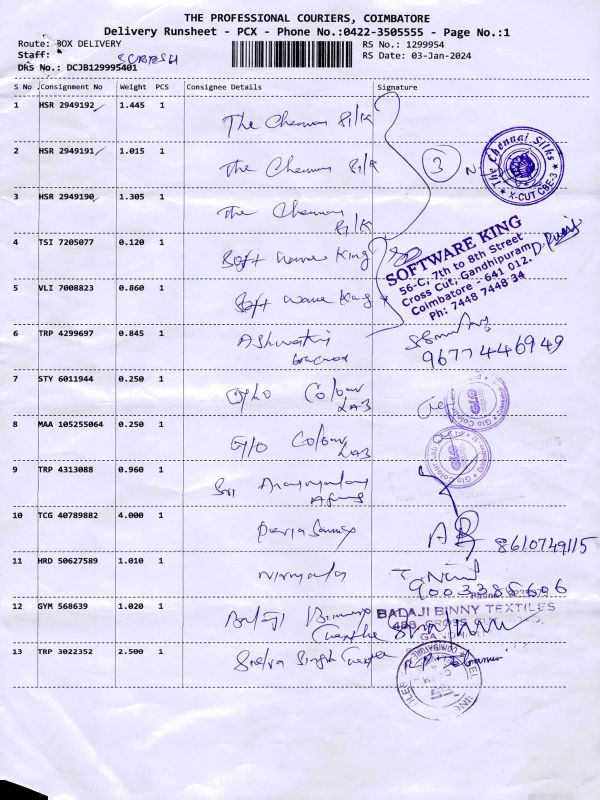 THE PROFESSIONAL COURIERS, COIMBATORE
Delivery Runsheet - PCX - Phone No.:0422-3505555 - Page No.:1
Route: BOX DELIVERY
RS No.: 1299954
Staff: SURESH
RS Date: 03-Jan-2024
DRS No.: DCJB129995401
S No Consignment No Weight PCS Consignee Details Signature
1 HSR 2949192 1.445 1 The Chennai Silk
2 HSR 2949191 1.015 1 The Chennai Silk 3
The Chennai Silks
X-CUT CBE-3
3 HSR 2949190 1.305 1 The Chennai Silk
4 TSI 7205077 0.120 1 Soft ware King
SOFTWARE KING
56-C, 7th to 8th Street
Cross Cut, Gandhipuram
Coimbatore - 641 012.
Ph: 7448 7448 34
5 VLI 7008823 0.860 1 Soft ware King
6 TRP 4299697 0.845 1 Ashwathi
9677446949
7 STY 6011944 0.250 1 Glo Colour LAB
8 MAA 105255064 0.250 1 Glo Colour LAB
9 TRP 4313088 0.960 1 Sri
10 TCG 40789882 4.000 1
8610749115
11 HRD 50627589 1.010 1 Nirmala
12 GYM 568639 1.020 1 Balaji Binny
BALAJI BINNY TEXTILES
13 TRP 3022352 2.500 1 Singh